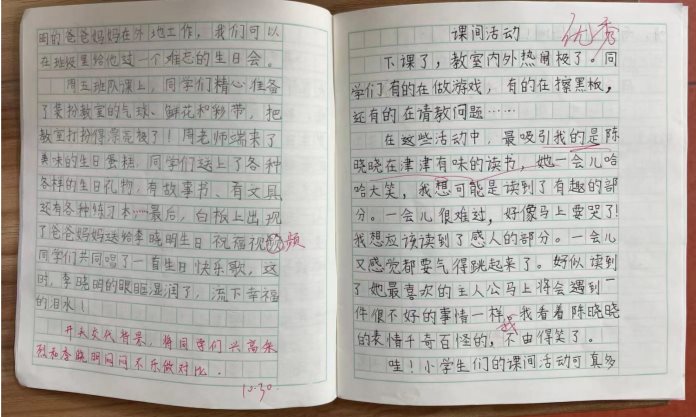 明的爸爸妈妈在外地工作，我们可以
在班级里给他过一个难忘的生日会。
周五班队课上，同学们精心准备
了装扮教室的气球、鲜花和彩带，把
教室打扮得漂亮极了！周老师端来了
美味的生日蛋糕，同学们送上了各种
各样的生日礼物，有故事书、有文具，
还有各种练习本……最后，白板上出现
了爸爸妈妈送给李晓明生日祝福视频
同学们共同唱了一首生日快乐歌，这
时，李晓明的眼眶湿润了，流下幸福
的泪水！
开头交代背景，将同学们兴高采
烈和李晓明闷闷不乐做对比。
10.30
优秀
课间活动
下课了，教室内外热闹极了。同
学们了有的在做游戏，有的在擦黑板，
还有的在请教问题……
在这些活动中，最吸引我的是陈
晓晓在津津有味的读书，她一会儿哈
哈大笑，我想可能是读到了有趣的部
分。一会儿很难过，好像马上要哭了！
我想应该读到了感人的部分。一会儿
又感觉都要气得跳起来了。好似读到
了她最喜欢的主人公马上将会遇到一
件很不好的事情一样。我看着陈晓晓
的表情千奇百怪的，我不由得笑了。
哇！小学生们的课间活动可真多